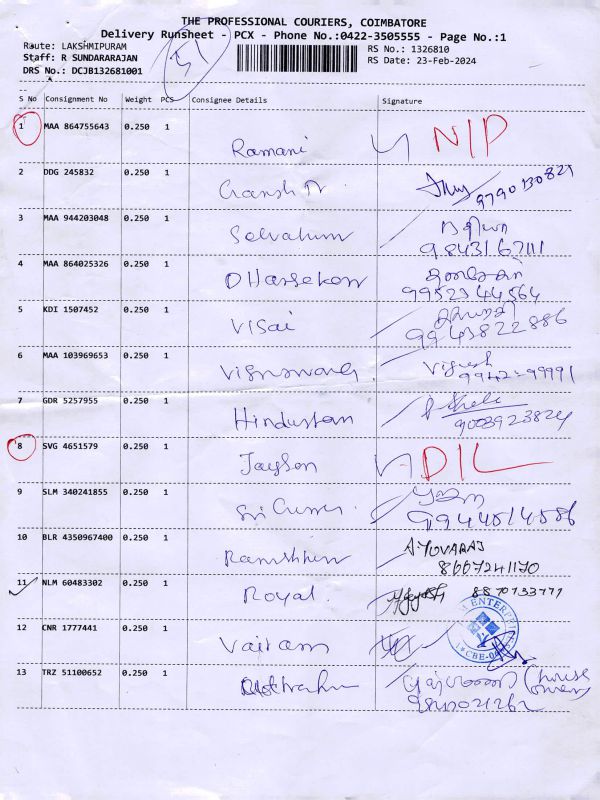 THE PROFESSIONAL COURIERS, COIMBATORE
Delivery Runsheet - PCX - Phone No.:0422-3505555 - Page No.:1
Route: LAKSHMIPURAM
RS No.: 1326810
Staff: R SUNDARARAJAN
RS Date: 23-Feb-2024
DRS No.: DCJB132681001
S No Consignment No Weight PCS Consignee Details Signature
1 MAA 864755643 0.250 1 Ramani N/P
2 DDG 245832 0.250 1 9790130821
3 MAA 944203048 0.250 1 Selvakum
9843167111
4 MAA 864025326 0.250 1 DHansekar
9952344564
5 KDI 1507452 0.250 1 Visai
9943822886
6 MAA 103969653 0.250 1 Vignesh
7 GDR 5257955 0.250 1 Hindustan
9003923824
8 SVG 4651579 0.250 1 Jayson D/L
9 SLM 340241855 0.250 1 Sri
9944514586
10 BLR 4350967400 0.250 1 A.YUVARAJ
8667241170
11 NLM 60483302 0.250 1 Royal. 8870133777
12 CNR 1777441 0.250 1 Vairam
13 TRZ 51100652 0.250 1 (house owner)